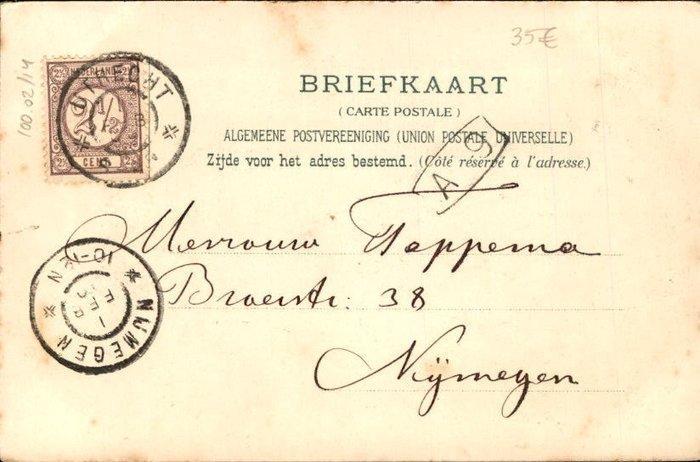 35€
10002/14
NEDERLAND
2½
CENT
UTRECHT
BRIEFKAART
(CARTE POSTALE)
ALGEMEENE POSTVEREENIGING (UNION POSTALE UNIVERSELLE)
Zijde voor het adres bestemd. (Côté réservé à l'adresse.)
A 9
Mevrouw Tappema
Broerstr. 38
Nijmegen
10-12N
NIJMEGEN